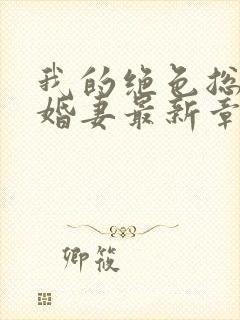 我的绝色总
婚妻最新章
卿筱